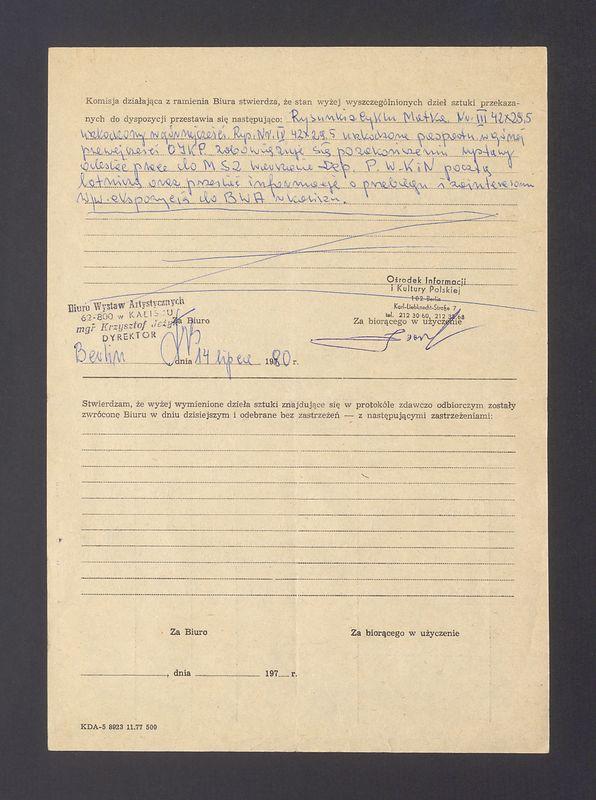 Komisja działająca z ramienia Biura stwierdza, że stan wyżej wyszczególnionych dzieł sztuki przekaza-
nych do dyspozycji przestawia się następująco: Rysunki z cyklu Matka Nr. III 42x29,5
uszkodzony w górnej części Rys. Nr. IV 42x29,5 uszkodzone passpartu w górnej
prawej części OIKP zobowiązuje się po zakończeniu wystawy
odesłać prace do MSZ Warszawa Dep. P.W.KiN pocztą
lotniczą oraz przesłać informację o przebiegu i zainteresowaniu
w/w. ekspozycją do BWA w Kaliszu.
Ośrodek Informacji
i Kultury Polskiej
102 Berlin
Karl-Liebknecht-Straße 7
tel. 212 30 60, 212 32 68
Biuro Wystaw Artystycznych
62-800 w KALISZU
Za Biuro
Za biorącego w użyczenie
mgr Krzysztof
DYREKTOR
Berlin dnia 14 lipca 1980 r.
Stwierdzam, że wyżej wymienione dzieła sztuki znajdujące się w protokóle zdawczo odbiorczym zostały
zwrócone Biuru w dniu dzisiejszym i odebrane bez zastrzeżeń — z następującymi zastrzeżeniami:
Za Biuro
Za biorącego w użyczenie
, dnia 197 r.
KDA-5 8923 11.77 500